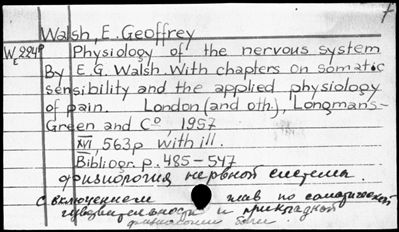 Walsh, E. Geoffrey
Physiology of the nervous system
By E.G. Walsh. With chapters on somatic
sensibility and the applied physiology
of pain. London (and oth.), Longmans-
Green and C°, 1957
XVI, 563p with ill.
Bibliogr. p. 485-547
физиология нервной системы.
с включением глав по соматической
чувствительности и прикладной
физиологии боли.